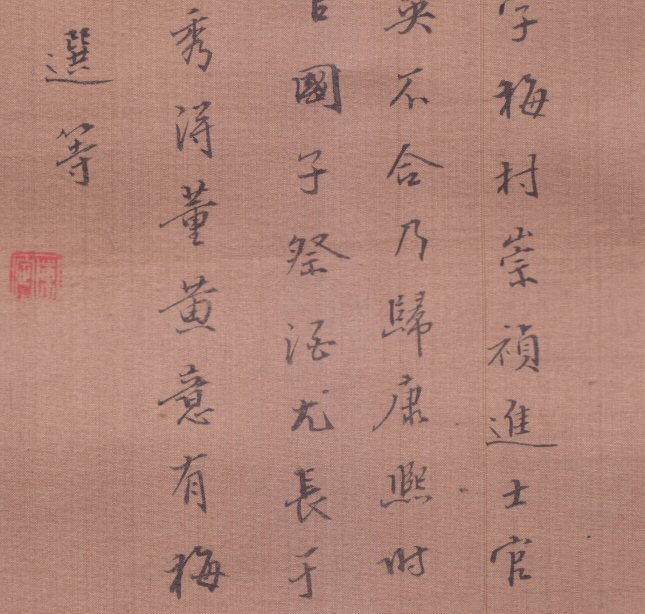 字梅村崇禎進士官
英不合乃歸康熙時
官國子祭酒尤長于
秀得董黄意有梅
選等